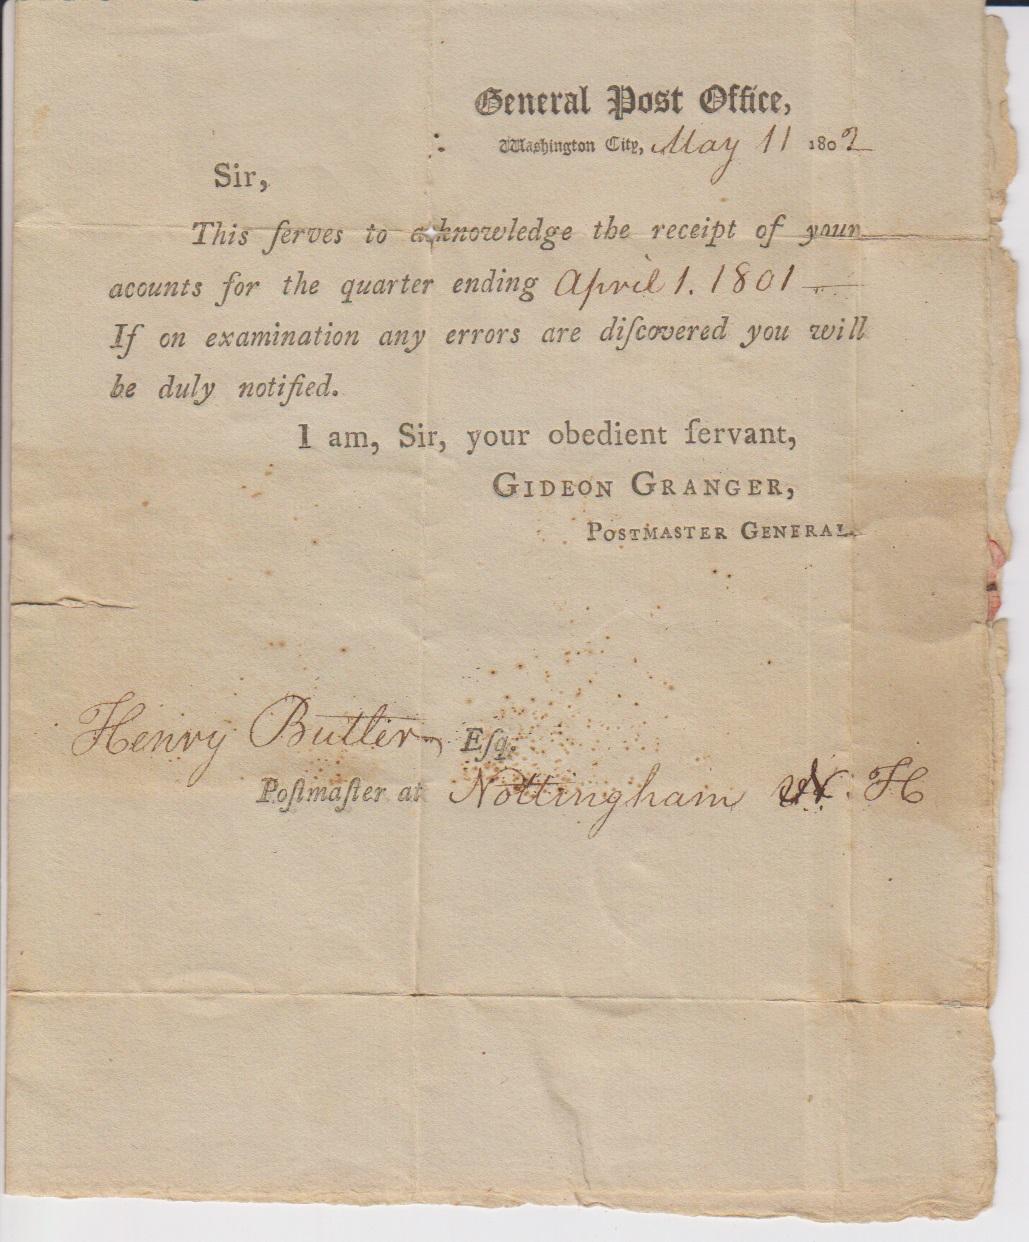 General Post Office,
Washington City, May 11 1802
Sir,
This ſerves to acknowledge the receipt of your
acounts for the quarter ending April 1. 1801
If on examination any errors are diſcovered you will
be duly notified.
I am, Sir, your obedient ſervant,
GIDEON GRANGER,
POSTMASTER GENERAL.
Henry Butler Eſq.
Poſtmaſter at Nottingham N. H